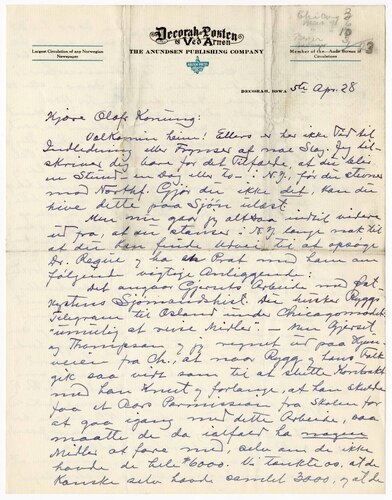 Decorah-Posten
og Ved Arnen
THE ANUNDSEN PUBLISHING COMPANY
Largest Circulation of any Norwegian
Newspaper
Member of the Audit Bureau of
Circulations
DECORAH, IOWA 5te Apr. 28
Kjære Olafs Konung:
Velkomin heim! Ellers er her ikke Tid til
Indledning eller Frynser af noe Slag. Jeg til-
skriver dig bare for det Tilfælde, at du blev
en Stund, en Dag eller to i N.Y., før du stevner
mod Northf. Gjør du ikke det, kan du
hive dette paa Sjøn ulæst.
Men nu gaar jeg altsaa indtil videre
ud fra, at du stanser i N.Y. længe nok til
at du kan finde til at opsøge
Dr. Regne og ha en Prat med ham om
følgende vigtige Anliggende:
Det angaar Gjersets Arbeide med
Kystens Sjømandshist. Du husker Ryggs
Telegram til Osland under Chicagomødet:
"umulig at reise Midler" — Men Gjerset
og Thompson og jeg regnet ud paa Hjem-
veien fra Ch., at naar Rygg og hans Folk
gik saa vidt som til at slutte Kontrakt
med han Knut og forlange, at han skulde
faa et Aars Permission fra Skolen for
at gaa igang med dette Arbeide, saa
maatte de da ialfald ha nogen
Midler at fare med, selv om de ikke
havde de hele $6000. Vi tænkte os, at de
kanske selv havde samlet 3000, og at de